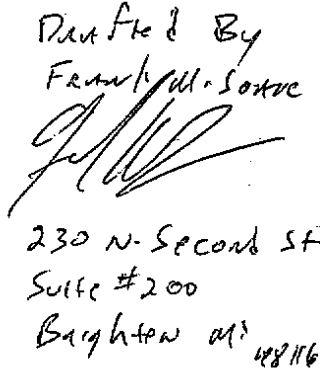 Drafted By
Frank M. Soave
230 N. Second St
Suite #200
Brighton Mi 48116